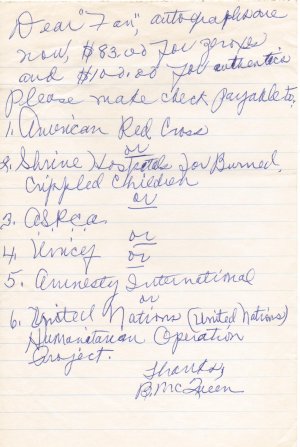 Dear "Fan", autographs are
now, $83.00 for xeroxs
and $100.00 for authentica
Please make check payable to,
1. American Red Cross
or
2. Shrine Hospitals for Burned,
Crippled Children
or
3. A.S.P.C.A.
or
4. Unicef or
5. Amnesty International
or
6. United Nations (United Nations)
Humanatarian Operation
Project.
Thanks,
B. McQueen